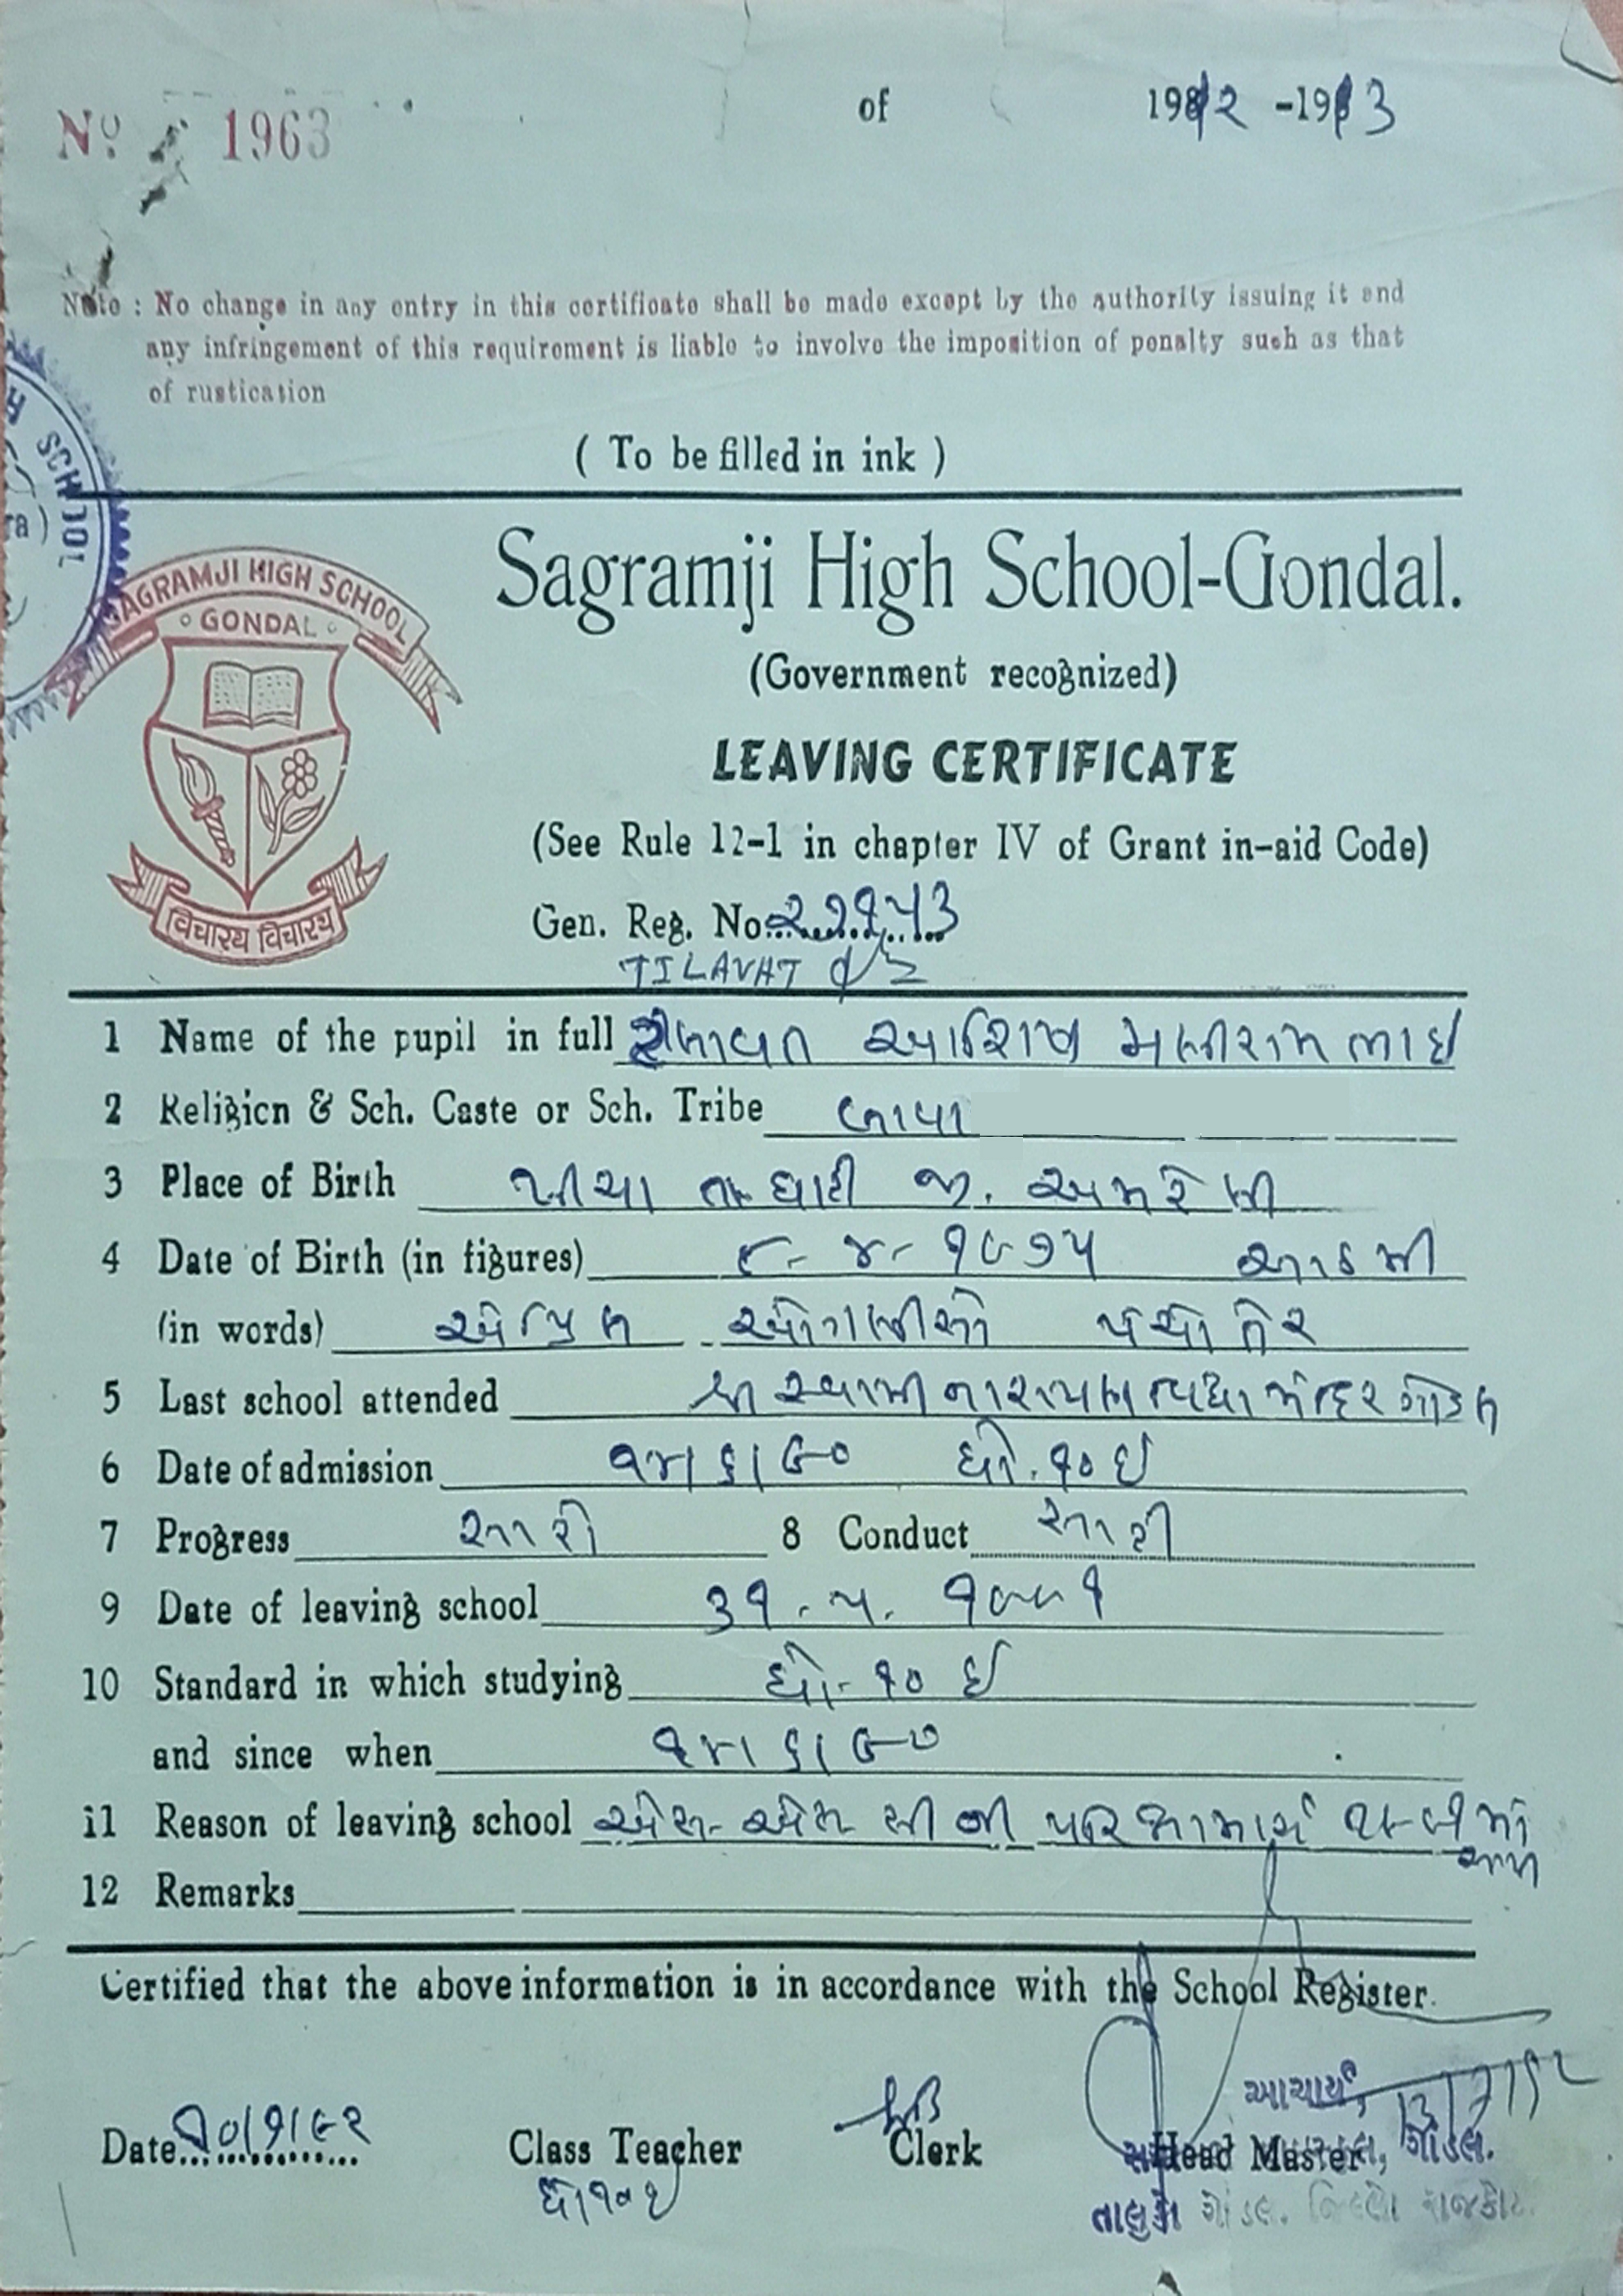 No 1963 of 1982 -1983
Note : No change in any entry in this certificate shall be made except by the authority issuing it and
any infringement of this requirement is liable to involve the imposition of penalty such as that
of rustication
( To be filled in ink )
SAGRAMJI HIGH SCHOOL
GONDAL
Sagramji High School-Gondal.
(Government recognized)
LEAVING CERTIFICATE
(See Rule 12-1 in chapter IV of Grant in-aid Code)
विचारय विचारय
Gen. Reg. No. ૨૨૧૫૩
TILAVAT
1 Name of the pupil in full
2 Religion & Sch. Caste or Sch. Tribe બાવા
3 Place of Birth ખીચા તા ધારી જી. અમરેલી
4 Date of Birth (in figures) ૮-૪-૧૯૭૫ આઠમી
(in words) એપ્રિલ ઓગણીસો પંચોતેર
5 Last school attended શ્રી સ્વામીનારાયણ વિદ્યા મંદિર ગોંડલ
6 Date of admission ૧૪/૬/૯૦ ધો. ૧૦ ઈ
7 Progress સારો 8 Conduct સારી
9 Date of leaving school ૩૧. ૫. ૧૯૯૧
10 Standard in which studying ધો-૧૦ ઈ
and since when ૧૪/૬/૯૦
11 Reason of leaving school એસ. એસ સી ની
12 Remarks
Certified that the above information is in accordance with the School Register.
Date ૧૦/૧/૯૨ Class Teacher Clerk Head Master,
આચાર્ય,
ગોંડલ.
તાલુકો ગોંડલ. જિલ્લો રાજકોટ.